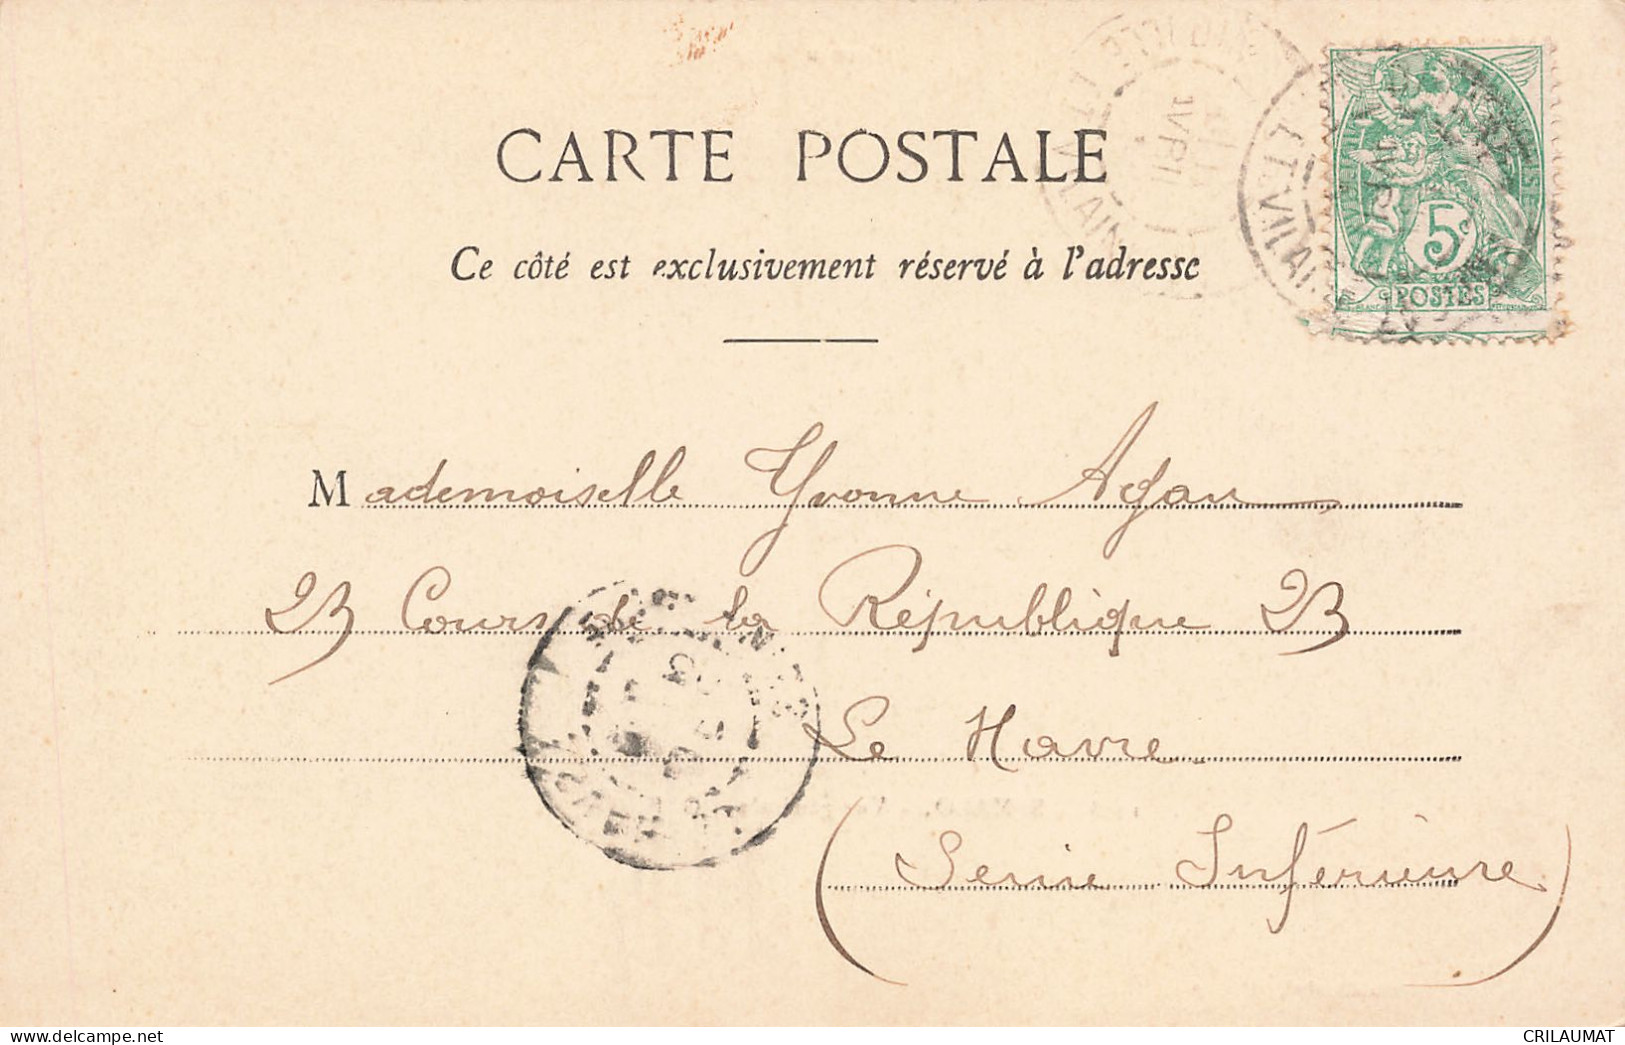 CARTE POSTALE
Ce côté est exclusivement réservé à l'adresse
5c
POSTES
ET-VILAINE
Mademoiselle Yvonne Agau
23 Cours de la République 23
Le Havre
(Seine Inférieure)
www.delcampe.net
CRILAUMAT